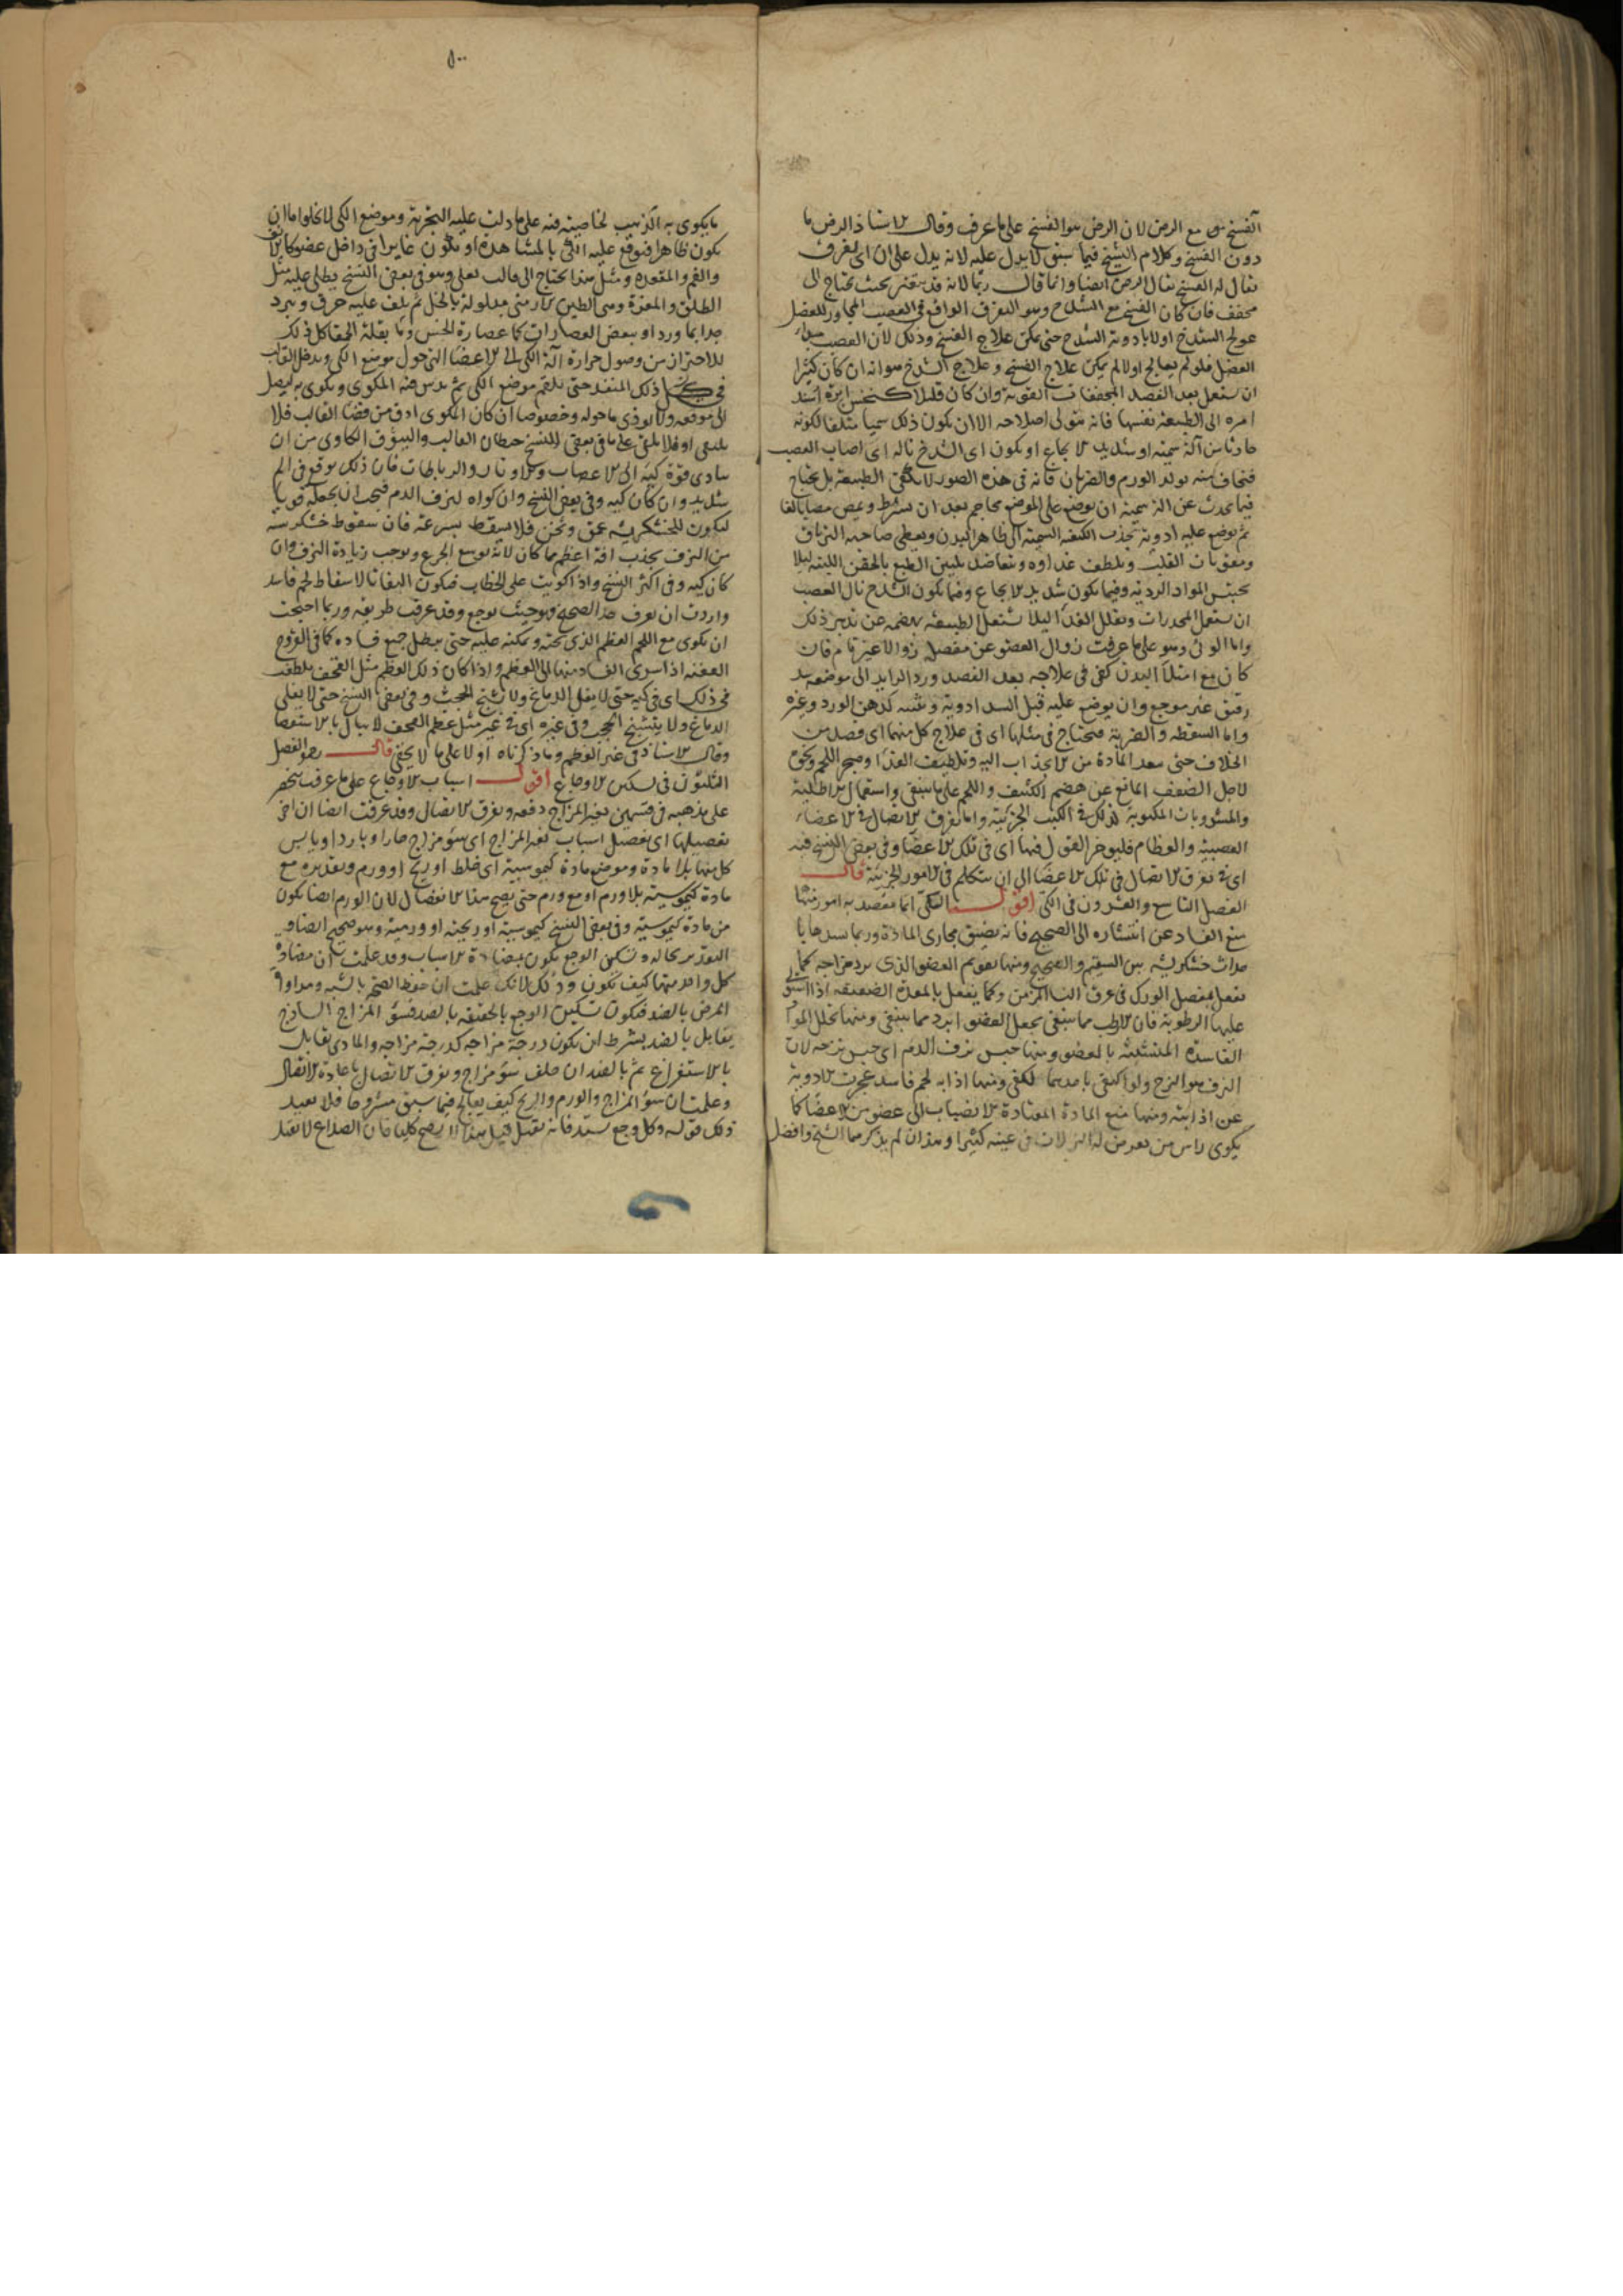 الفسخ مع الرض لان الرض هو الفسخ على ما عرف وقال الاستاذ الرض ما
دون الفسخ وكلام الشيخ فيما سبق لا يدل عليه لانه يدل على ان اى تفرق
يقال له الفسخ يقال الرض ايضا وانما قال ربما لانه قد يفتقر بحيث يحتاج الى
مجفف فان كان الفسخ مع الشدخ وهو التفرق الواقع فى العصب المجاور للعضل
عولج الشدخ اولا بادوية الشدخ حتى يمكن علاج الفسخ وذلك لان العصب
العضل فلو لم يعالج اولا لم يمكن علاج الفسخ وعلاج الشدخ هو انه ان كان كثيرا
ان يستعمل بعد الفصد المجففات القوية وان كان قليلا كنخس ابرة اسند
امره الى الطبيعة نفسها فانه يتولى اصلاحه الا ان يكون ذلك سميا متلفا لكونه
حادثا من آلة سمية او شديد الايجاع او يكون اى الشدخ ناله اى اصاب العصب
فيخاف منه تولد الورم والضربان فانه فى هذه الصور لا يكفى الطبيعة بل يحتاج
فيما يحدث عن السمية ان يوضع على الموضع محاجم بعد ان يشرط ويمص مصا بالغا
ثم يوضع عليه ادوية تجذب الكيفية السمية الى ظاهر البدن ويعطى صاحبه الترياق
ومقويات القلب ويلطف غذاوه ويتعاهد بتليين الطبع بالحقن اللينة ليلا
يحتبس المواد الردية وفيما يكون شديد الايجاع وفيما يكون الشدخ نال العصب
ان يستعمل المخدرات ويقلل الغذا ليلا يشتغل الطبيعة بهضمه عن تدبير ذلك
واما الوثى وهو على ما عرفت زوال العضو عن مفصله زوالا غير تام فان
كان مع امتلا البدن كفى فى علاجه بعد الفصد ورد الزايد الى موضعه
رقيق غير موجع وان يوضع عليه قبل الشد ادوية كدهن الورد وغيره
واما السقطة والضربة فيحتاج فى مثلها اى فى علاج كل منهما اى فصد من
الخلاف حتى يبعد المادة من الانجذاب اليه وتلطيف الغذا وهجر اللحم ونحوه
لاجل الضعف المانع عن هضم الكثيف واللحم على ما ينبغى واستعمال الاطلية
والمشروبات المكتوبة لذلك فى الكتب الجزئية واما تفرق الاتصال فى الاعضاء
العصبية والعظام فليوخر القول فيها اى فى تلك الاعضا وفى بعض النسخ فيه
اى فى تفرق الاتصال فى تلك الاعضا الى ان نتكلم فى الامور الجزئية قال
الفصل التاسع والعشرون فى الكى اقول الكى انما يقصد به امور منها
منع الفساد عن انتشاره الى الصحيح فانه يضيق مجارى المادة وربما سدها با
حداث خشكريشة بين السقيم والصحيح ومنها تقويم العضو الذى برد مزاجه كما
يفعل بمفصل الورك فى عرق النسا المزمن وكما يفعل بالمعدة الضعيفة اذا استولى
عليها الرطوبة فان الارطب مما ينبغى يجعل العضو ابرد مما ينبغى ومنها تحلل المواد
الفاسدة المتشبثة بالعضو ومنها حبس نزف الدم اى حبس نزحه لان
النزف هو النزح ولو اكتفى باحدهما لكفى ومنها اذابة لحم فاسد عجزت الادوية
عن اذابته ومنها منع المادة المعتادة الانصباب الى عضو من الاعضا كما
يكوى راس من تعرض له النزلات فى عينه كثيرا وهذان لم يذكرهما الشيخ وافضل
٥٠٠
ما يكوى به الذهب لخاصية فيه على ما دلت عليه التجربة وموضع الكى لا يخلوا ما ان
يكون ظاهرا فيوقع عليه الكى بالمشاهدة او يكون غايرا فى داخل عضو كالانف
والفم والمقعدة ومثل هذا يحتاج الى قالب يغلى وهو فى بعض النسخ يطلى عليه مثل
الطلق والمغرة وهى الطين الارمنى مبلولة بالخل ثم يلف عليه خرق ويبرد
جدا بما ورد او ببعض العصارات كا عصارة الخس وما بقلة الحمقا كل ذلك
للاحتراز من وصول حرارة آلة الكى الى الاعضا التى حول موضع الكى ويدخل القالب
فى ذلك المنفذ حتى يلتقم موضع الكى ثم يدس فيه المكوى ويكوى به ليصل
الى موقعه ولا يوذى ما حوله وخصوصا ان كان المكوى ادق من فضا القالب فلا
يلتقى او فلا يلقى على ما فى بعض النسخ حيطان القالب وليتوق الكاوى من ان
يتادى قوة كيه الى الاعصاب والاوتار والرباطات فان ذلك يوقع فى الم
شديد وان كان كيه وفى بعض النسخ وان كواه لنزف الدم فيجب ان يجعله قويا
ليكون للخشكريشة عمق وثخن فلا يسقط بسرعة فان سقوط خشكريشة
من النزف يجذب آفة اعظم مما كان لانه يوسع الجرح ويوجب زيادة النزف وان
كان كيه وفى اكثر النسخ واذا كويت على الخطاب فيكون التفاتا لاسقاط لحم فاسد
واردت ان تعرف حد الصحيح فهو حيث يوجع وقد عرفت طريقه وربما احتجت
ان يكوى مع اللحم العظم الذى تحته ويمكنه عليه حتى يبطل جميع فساده كما فى القروح
العفنة اذا سرى الفساد منها الى العظم واذا كان ذلك العظم مثل القحف يلطف
فى ذلك اى فى كيه حتى لا يغلى الدماغ ولا يتشنج الحجب وفى بعض النسخ حتى لا يغلى
الدماغ ولا يتشنج الحجب وفى غيره اى فى غير مثل عظم القحف لا يبال بالاستقصا
وقال الاستاذ فى غير العظم وما ذكرناه اولا على ما لا يخفى قال رحمه الفصل
الثلثون فى تسكين الاوجاع اقول اسباب الاوجاع على ما عرفت منحصر
على مذهبه فى قسمين تغير المزاج دفعه وتفرق الاتصال وقد عرفت ايضا ان آخر
تفصيلها اى تفصيل اسباب تغير المزاج اى سوء مزاج حار او بارد او يابس
كل منها بلا مادة وموضع مادة كيموسية اى خلط او ريح او ورم وتقديره مع
مادة كيموسية بلا ورم او مع ورم حتى يصح هذا الانفصال لان الورم ايضا يكون
من مادة كيموسية وفى بعض النسخ كيموسية او ريحية او ورمية وهو صحيح ايضا و
التقدير بحاله وتسكين الوجع يكون بمضادة الاسباب وقد علمت ان مضادة
كل واحد منها كيف يكون وذلك لانك علمت ان حفظ الصحة بالشبه ومداواة
المرض بالضد فيكون تسكين الوجع بالحقيقة بالضد فسوء المزاج الساذج
يقابل بالضد بشرط ان يكون درجة مزاجه كدرجة مزاجه والمادى يقابل
بالاستفراغ ثم بالضد ان خلف سوء مزاج وتفرق الاتصال باعادة الاتصال
وعلمت ان سوء المزاج والورم والريح كيف يعالج فيما سبق مشروحا فلا نعيد
ذلك قوله وكل وجع يشتد فانه يقتل قيل هذا لا يصح كليا فان الصداع لا يقتل